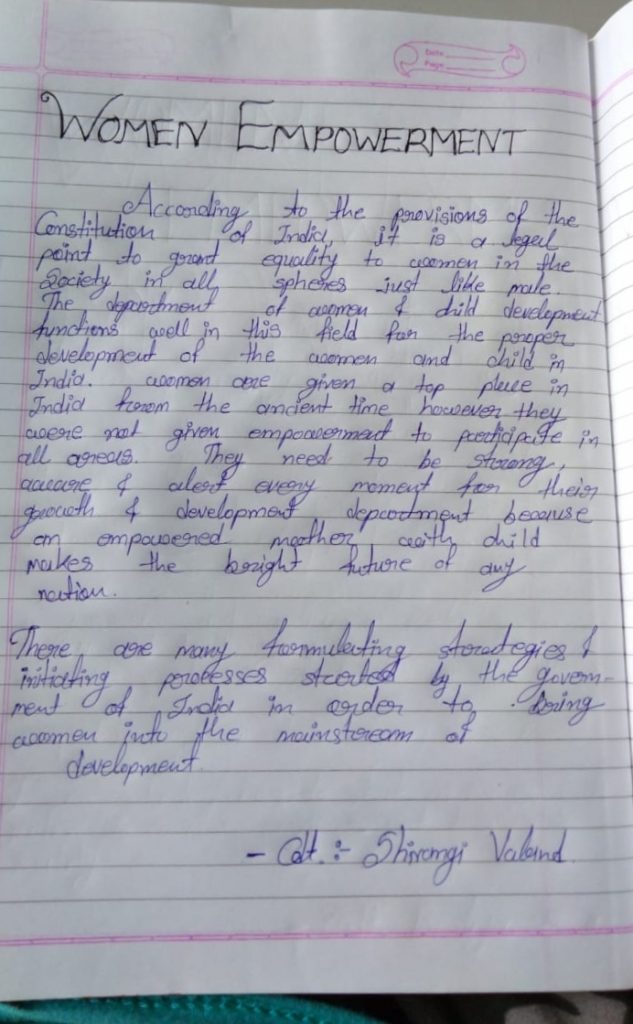 Date
Page
WOMEN EMPOWERMENT
According to the provisions of the
Constitution of India, it is a legal
point to grant equality to women in the
Society in all spheres just like male.
The department of women & child development
functions well in this field for the proper
development of the women and child in
India. women are given a top place in
India from the ancient time however they
were not given empowerment to participate in
all areas. They need to be strong,
aware & alert every moment for their
growth & development department because
an empowered mother with child
makes the bright future of any
nation.
There are many formulating strategies &
initiating processes started by the govern-
ment of India in order to bring
women into the mainstream of
development.
- Cdt. :- Shivangi Valand.